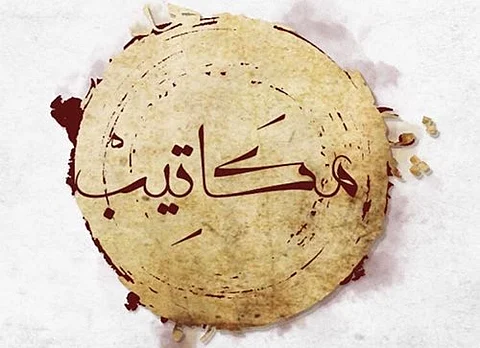 مَكَاتِيبْ